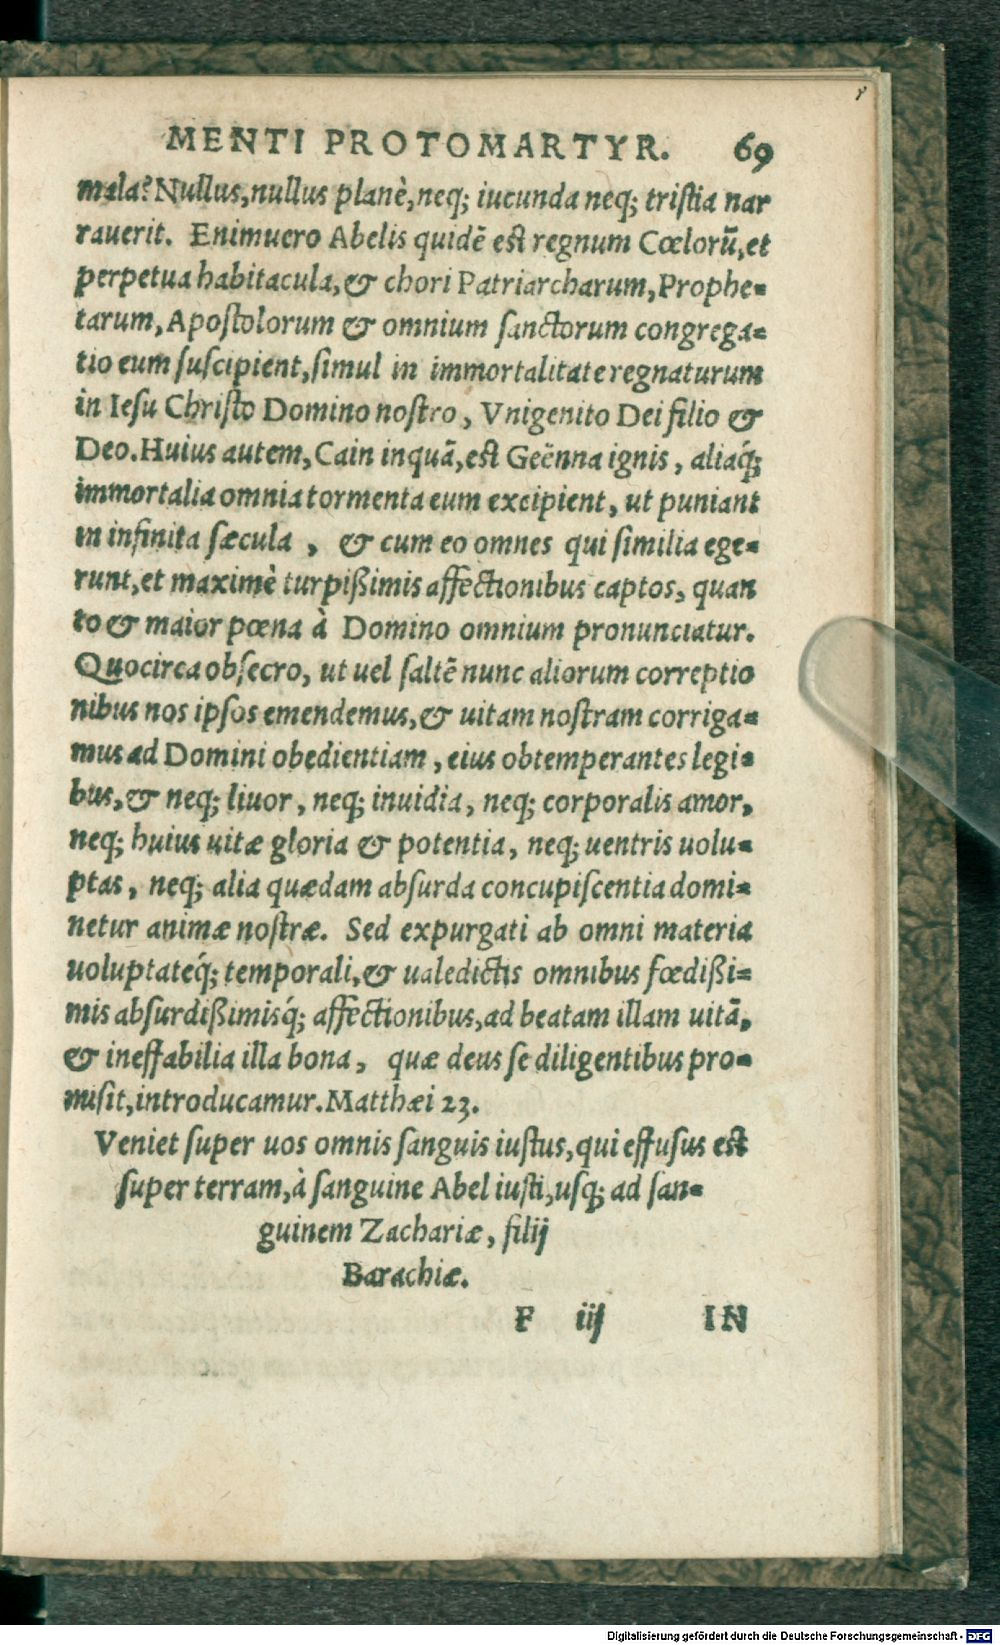 MENTI PROTOMARTYR. 69
mala? Nullus, nullus planè, neq; iucunda neq; tristia nar
rauerit. Enimuero Abelis quidē est regnum Cœlorū, et
perpetua habitacula, & chori Patriarcharum, Prophe-
tarum, Apostolorum & omnium sanctorum congrega-
tio eum suscipient, simul in immortalitate regnaturum
in Iesu Christo Domino nostro, Vnigenito Dei filio &
Deo. Huius autem, Cain inquā, est Geënna ignis, aliaq́;
immortalia omnia tormenta eum excipient, ut puniant
in infinita sæcula, & cum eo omnes qui similia ege-
runt, et maximè turpißimis affectionibus captos, quan
to & maior pœna à Domino omnium pronunciatur.
Quocirca obsecro, ut uel saltē nunc aliorum correptio
nibus nos ipsos emendemus, & uitam nostram corriga-
mus ad Domini obedientiam, eius obtemperantes legi-
bus, & neq; liuor, neq; inuidia, neq; corporalis amor,
neq; huius uitæ gloria & potentia, neq; uentris uolu-
ptas, neq; alia quædam absurda concupiscentia domi-
netur animæ nostræ. Sed expurgati ab omni materia
uoluptateq́; temporali, & ualedictis omnibus fœdißi-
mis absurdißimisq́; affectionibus, ad beatam illam uitā,
& ineffabilia illa bona, quæ deus se diligentibus pro-
misit, introducamur. Matthæi 23.
Veniet super uos omnis sanguis iustus, qui effusus est
super terram, à sanguine Abel iusti, usq; ad san-
guinem Zachariæ, filij
Barachiæ.
F iij IN
Digitalisierung gefördert durch die Deutsche Forschungsgemeinschaft - DFG